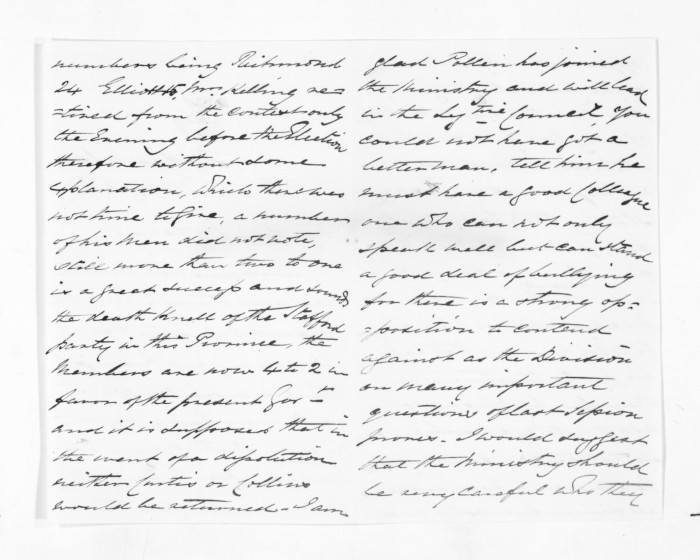 numbers being Richmond
24 Elliott 15, Mr. Kelling re=
=tired from the contest only
the Evening before the Election
therefore without some
explanation, which there was
not time to give, a number
of his men did not vote,
still more than two to one
is a great success and sounds
the death knell of the Stafford
party in this Province, the
Members are now 4 to 2 in
favor of the present Govt
and it is supposed that in
the event of a dissolution
neither Curtis or Collins
would be returned - I am
glad Pollen has joined
the Ministry and will lead
in the Legtive Council, You
could not have got a
better man, tell him he
must have a good Colleague
one who can not only
speak well but can stand
a good deal of bullying
for there is a strong op=
=position to contend
against as the Division
on many important
questions of last Session
proves - I would suggest
that the Ministry should
be very careful who they